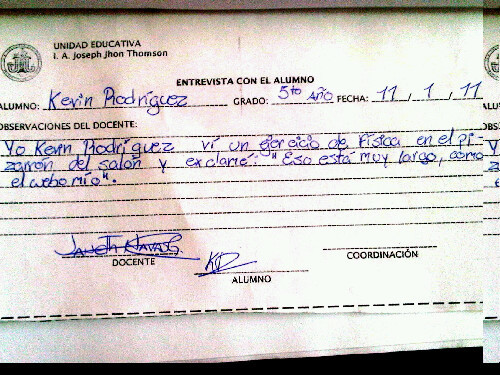 UNIDAD EDUCATIVA
I. A. Joseph Jhon Thomson
ENTREVISTA CON EL ALUMNO
ALUMNO: Kevin Rodríguez GRADO: 5to Año FECHA: 11 / 1 / 11
OBSERVACIONES DEL DOCENTE:
Yo Kevin Rodríguez ví un ejercicio de Física en el pi
zarrón del salón y exclamé: "Eso está muy largo, como
el webo mío".
DOCENTE
KR
ALUMNO
COORDINACIÓN